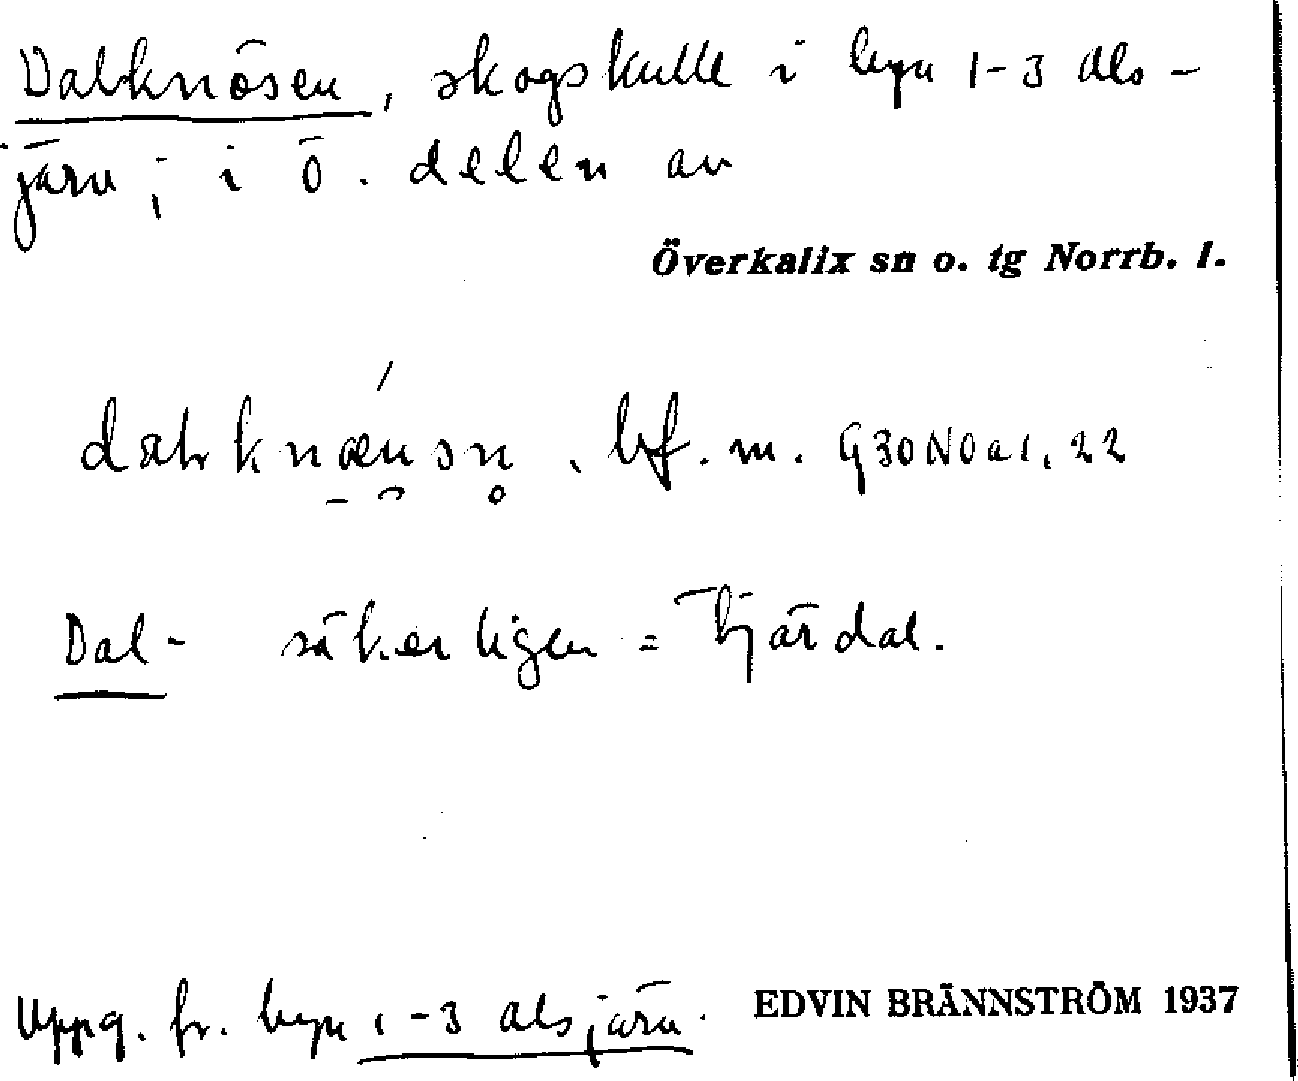 Dalknösen, skogskulle i byn 1-3 Als-
järv; i ö. delen av
Överkalix sn o. tg Norrb. l.
bf. m. G30NOa1, 22
Dal- säkerligen = Tjärdal.
Uppg. fr. byn 1-3 Alsjärv.
EDVIN BRÄNNSTRÖM 1937